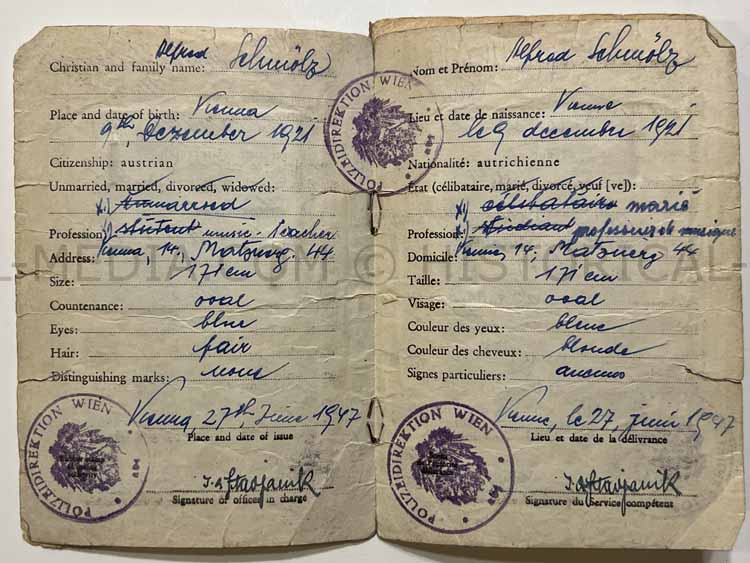 Alfred Schmölz
Christian and family name:
Place and date of birth: Vienna
9th, Dezember 1921
Citizenship: austrian
Unmarried, married, divorced, widowed:
x.) unmarried
Profession: x.) student music-teacher
Address: Vienna, 14., Matznerg. 44
Size: 171 cm
Countenance: oval
Eyes: blue
Hair: fair
Distinguishing marks: none
Vienna, 27th, June 1947
Place and date of issue
POLIZEIDIREKTION WIEN
Signature of officer in charge
Alfred Schmölz
Nom et Prénom:
POLIZEIDIREKTION WIEN
Lieu et date de naissance: Vienne
le 9 decembre 1921
Nationalité: autrichienne
État (célibataire, marié, divorcé, veuf [ve]):
x.) célibataire marié
Profession: x.) étudiant professeur de musique
Domicile: Vienne, 14., Matznerg 44
Taille: 171 cm
Visage: oval
Couleur des yeux: bleue
Couleur des cheveux: blonde
Signes particuliers: aucunes
Vienne, le 27, juin 1947
Lieu et date de la délivrance
POLIZEIDIREKTION WIEN
Signature du Service compétent
L-MEDIA.COM © HISTORICAL-